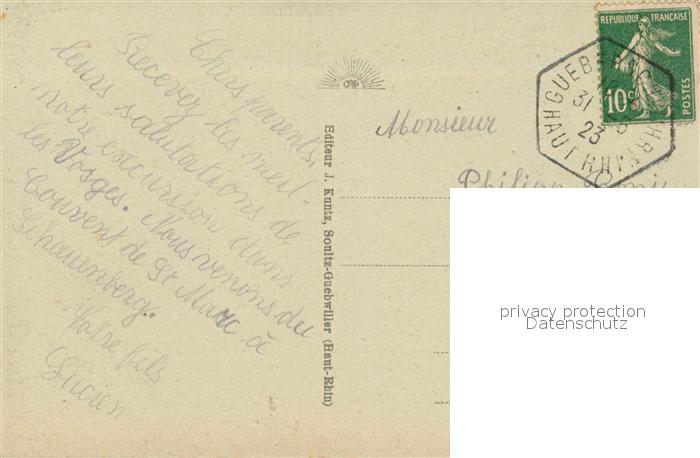 Chers parents,
Recevez les meil-
leurs salutations de
notre excursion dans
les Vosges. Nous venons du
Couvent de St Marc à
Schauenberg.
Votre fils
Lucien
Editeur J. Kuntz, Soultz-Guebwiller (Haut-Rhin)
Monsieur
REPUBLIQUE FRANÇAISE
10c
POSTES
GUEB
31
23
HAUT RHIN
privacy protection
Datenschutz